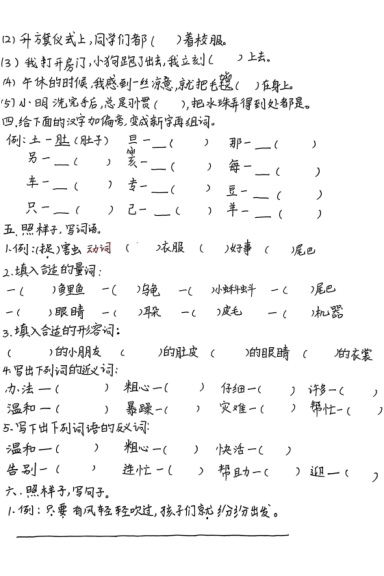 (2) 升旗仪式上,同学们都(  )着校服。
(3) 我打开房门,小狗跑了出去,我立刻(  )上去。
(4) 午休的时候,我感到一丝凉意,就把毛毯(  )在身上。
(5) 小明洗完手后,总是习惯(  ),把水珠弄得到处都是。
四.给下面的汉字加偏旁,变成新字再组词。
例:土-肚(肚子) 旦-__(  ) 那-__(  )
另-__(  ) 亥-__(  ) 每-__(  )
车-__(  ) 专-__(  ) 豆-__(  )
只-__(  ) 己-__(  ) 羊-__(  )
五.照样子,写词语。
1.例:(捉)害虫 动词 (  )衣服 (  )好事 (  )尾巴
2.填入合适的量词:
一(  )鲤鱼 一(  )乌龟 一(  )小蝌蚪 一(  )尾巴
一(  )眼睛 一(  )耳朵 一(  )皮毛 一(  )机器
3.填入合适的形容词:
(  )的小朋友 (  )的肚皮 (  )的眼睛 (  )的衣裳
4.写出下列词的近义词:
办法-(  ) 粗心-(  ) 仔细-(  ) 许多-(  )
温和-(  ) 暴躁-(  ) 灾难-(  ) 帮忙-(  )
5.写下出下列词语的反义词:
温和-(  ) 粗心-(  ) 快活-(  )
告别-(  ) 连忙-(  ) 帮助-(  ) 迎-(  )
六.照样子,写句子。
1.例:只要有风轻轻吹过,孩子们就纷纷出发。